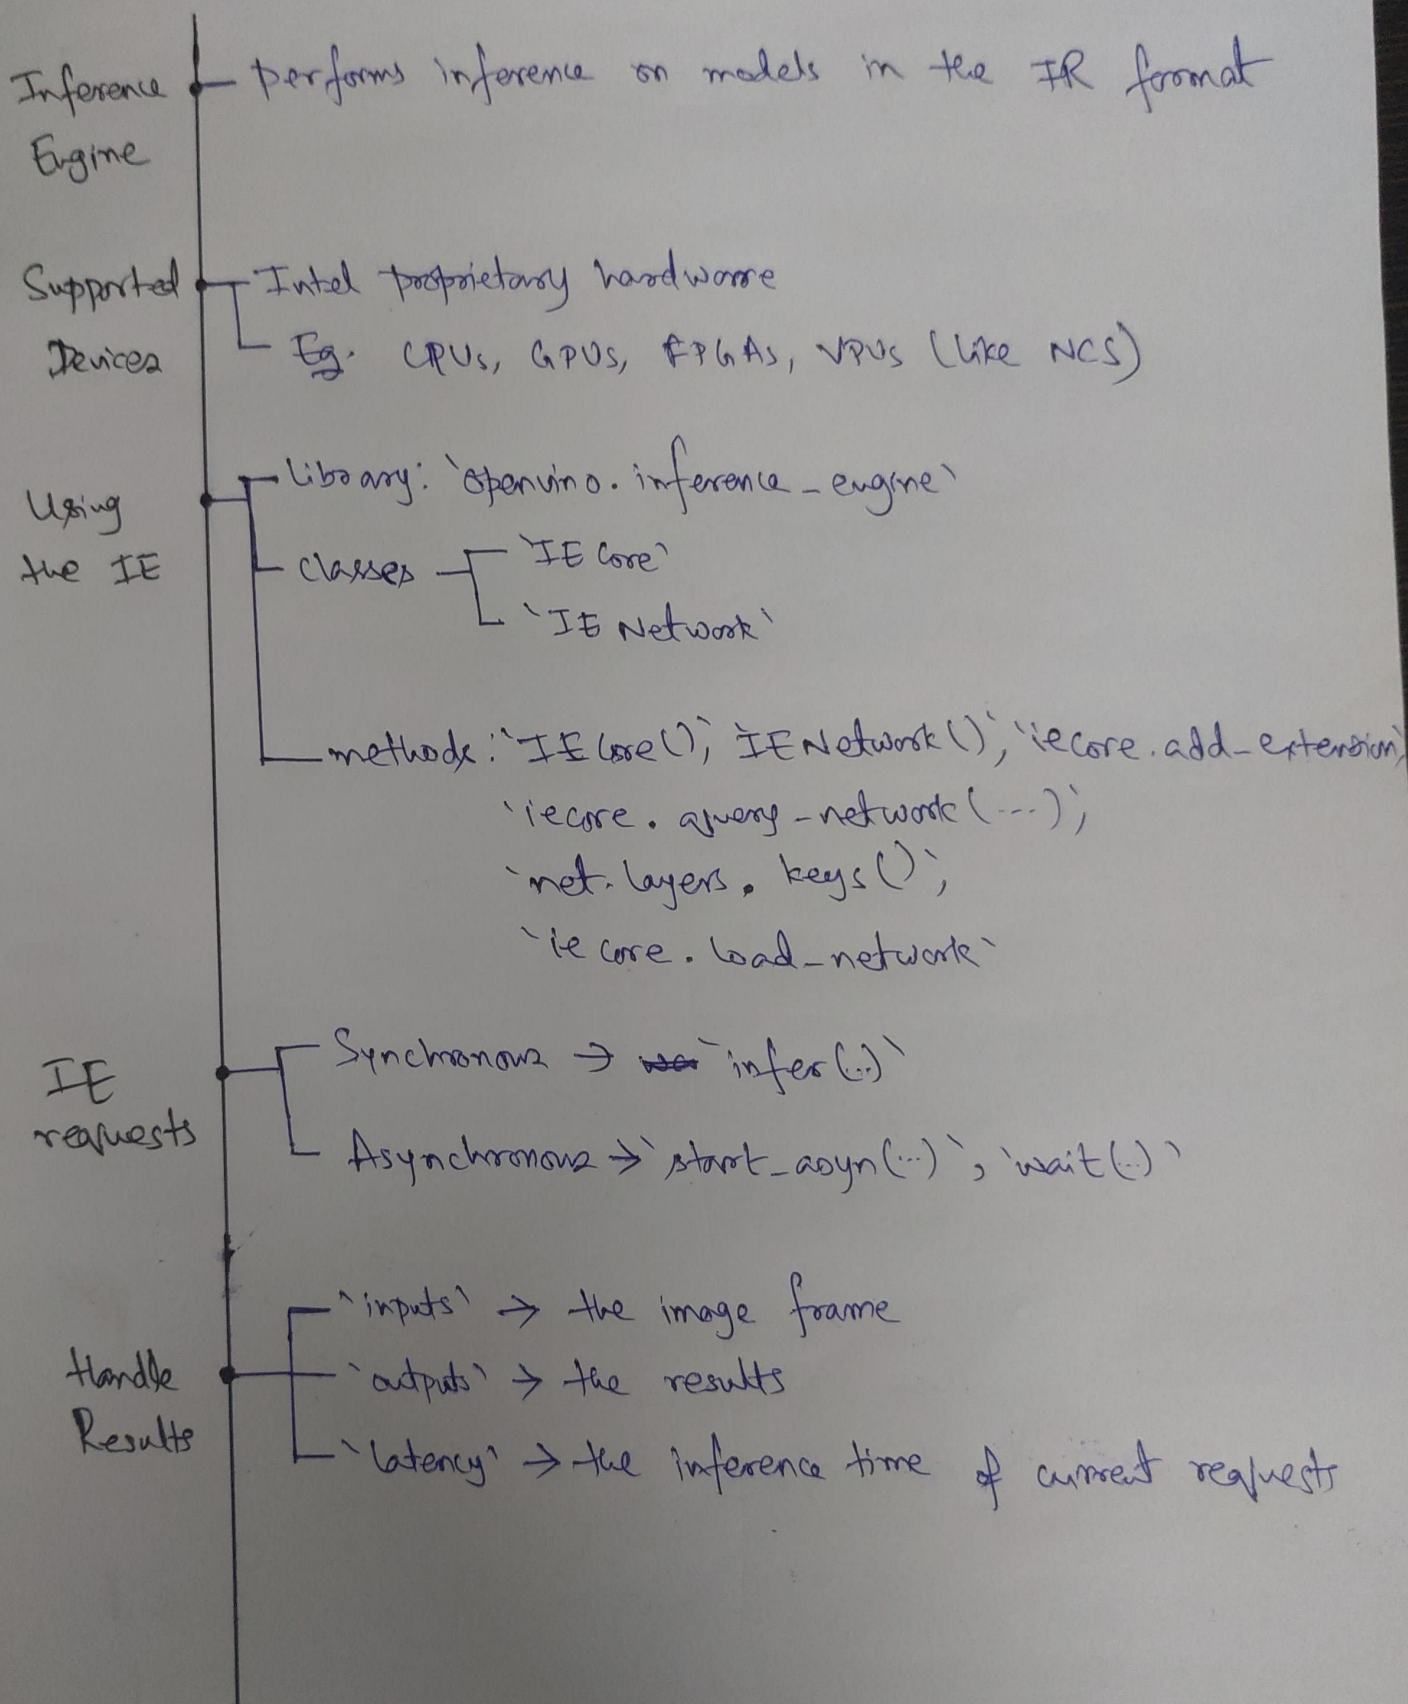 Inference Engine
performs inference on models in the IR format
Supported Devices
Intel proprietary hardware
Eg. CPUs, GPUs, FPGAs, VPUs (like NCS)
Using the IE
library: `openvino.inference_engine`
classes
`IECore`
`IENetwork`
methods: `IECore()`, `IENetwork()`, `iecore.add_extension`,
`iecore.query_network(...)`,
`net.layers.keys()`,
`iecore.load_network`
IE requests
Synchronous → `infer(..)`
Asynchronous → `start_asyn(...)`, `wait(..)`
Handle Results
`inputs` → the image frame
`outputs` → the results
`latency` → the inference time of current requests